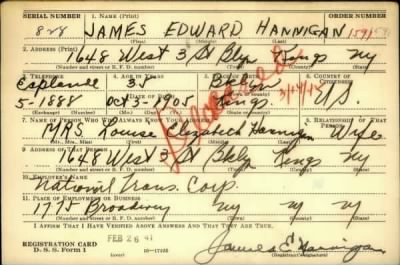 SERIAL NUMBER 1. NAME (Print) ORDER NUMBER
828 JAMES EDWARD HANNIGAN
(First) (Middle) (Last)
2. ADDRESS (Print)
1648 West 3 St Bklyn Kings NY
(Number and street or R. F. D. number) (Town) (County) (State)
3. TELEPHONE 4. AGE IN YEARS 5. PLACE OF BIRTH 6. COUNTRY OF CITIZENSHIP
Esplanade 5-1888
Oct 3-1905 Kings U.S.
7. NAME OF PERSON WHO WILL ALWAYS KNOW YOUR ADDRESS 8. RELATIONSHIP OF THAT PERSON
MRS. Louise Elizabeth Hannigan Wife
9. ADDRESS OF THAT PERSON
1648 West 3 St Bklyn Kings NY
(Number and street or R. F. D. number) (Town) (County) (State)
10. EMPLOYER'S NAME
National Trans. Corp.
11. PLACE OF EMPLOYMENT OR BUSINESS
1775 Broadway NY NY NY
(Number and street or R. F. D. number) (Town) (County) (State)
I AFFIRM THAT I HAVE VERIFIED ABOVE ANSWERS AND THAT THEY ARE TRUE.
REGISTRATION CARD
D. S. S. Form 1
FEB 26 41
James E Hannigan